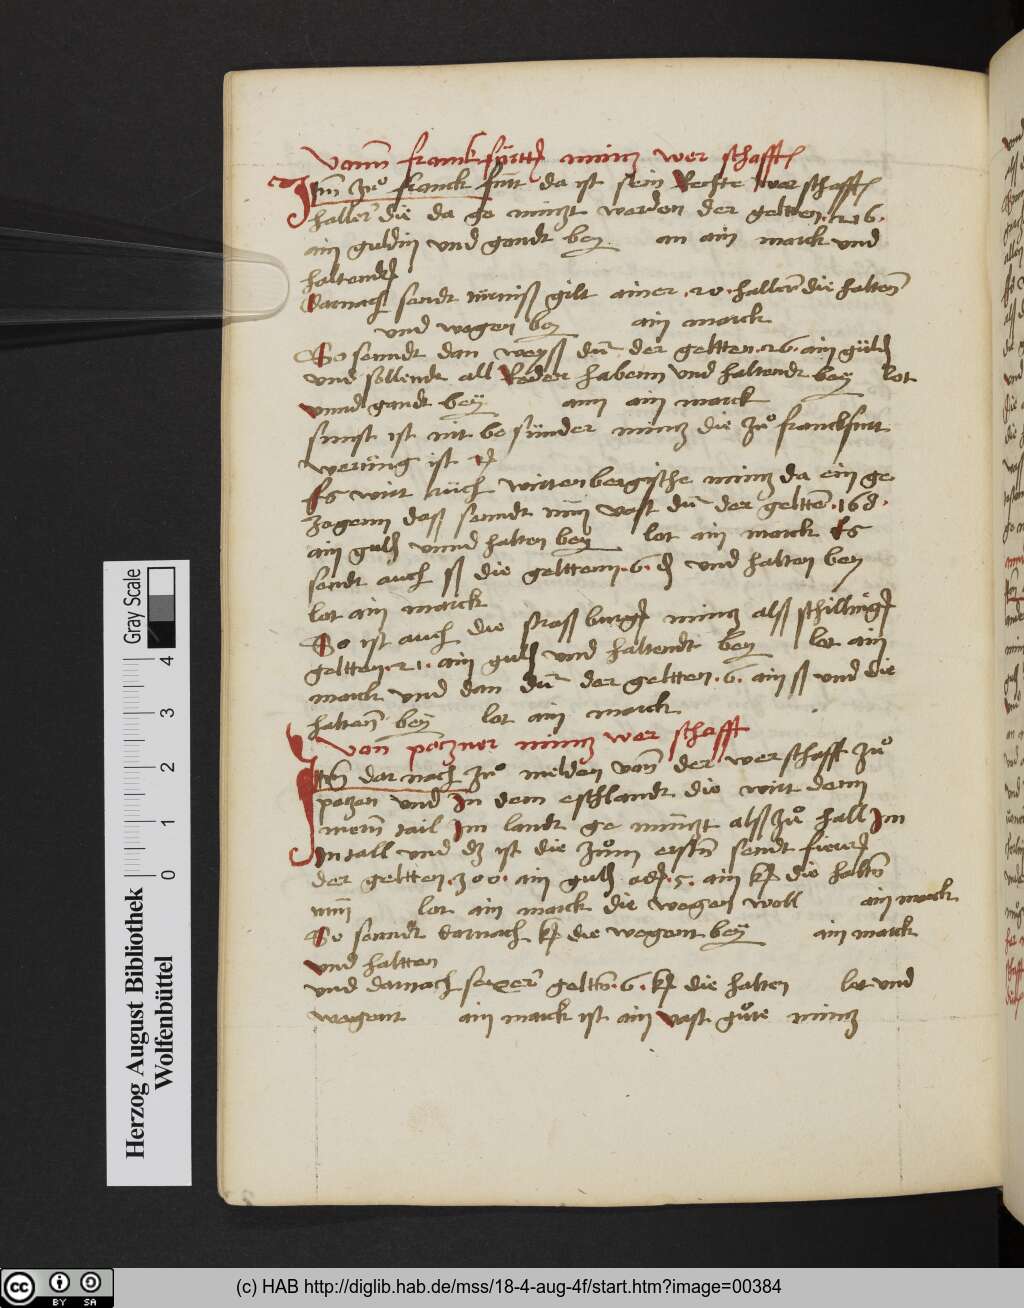 Vonn franckfurtter müncz wer schafft
Itm zů franck furt da ist sein Rechte wer schafft
haller die da ge münczt werden der geltten 216
ain guldin vnd gandt bey an ain marck vnd
haltendt
Darnach sendt gilt ainer 20 haller die halten
vnd wegen bey ain marck
So senndt dan weyss der geltten 26 ain guld
vnd sollendt all Reder habenn vnd haltendt bey lot
vnnd gandt bey ain marck
sunst ist nit besünder müncz die zů franckfurt
werüng ist
Es wirt auch wirtenbergische müncz da ein ge
zogenn dass senndt nun vast der geltten 168
ain guld vnnd halten bey lot ain marck Es
sendt auch ss die gelttenn 6 d vnd halten bey
lot ain marck
So ist auch die strassburger müncz alss schilling
geltten 21 ain guld vnd haltendt bey lot ain
marck vnd dan der geltten 6 ain ss vnd die
halten bey lot ain marck
Von poczner müncz wer schafft
Itm dar nach zů melden vonn der werschafft zů
poczen vnd In dem etschlandt die wirt denn
merern tail Im landt ge münczt alss zů hall Im
Intall vnd dz ist die zům ersten sendt fierer
der geltten 300 ain guld oder 5 ain kr die halten
lot ain marck die wegen woll ain marck
So senndt darnach kr die wegent bey ain marck
vnd haltten
vnd darnach sexer geltten 6 kr die halten lot vnd
wegent ain marck ist ain vast gůte müncz
Gray Scale
0 1 2 3 4
Herzog August Bibliothek
Wolfenbüttel
cc BY SA
(c) HAB http://diglib.hab.de/mss/18-4-aug-4f/start.htm?image=00384